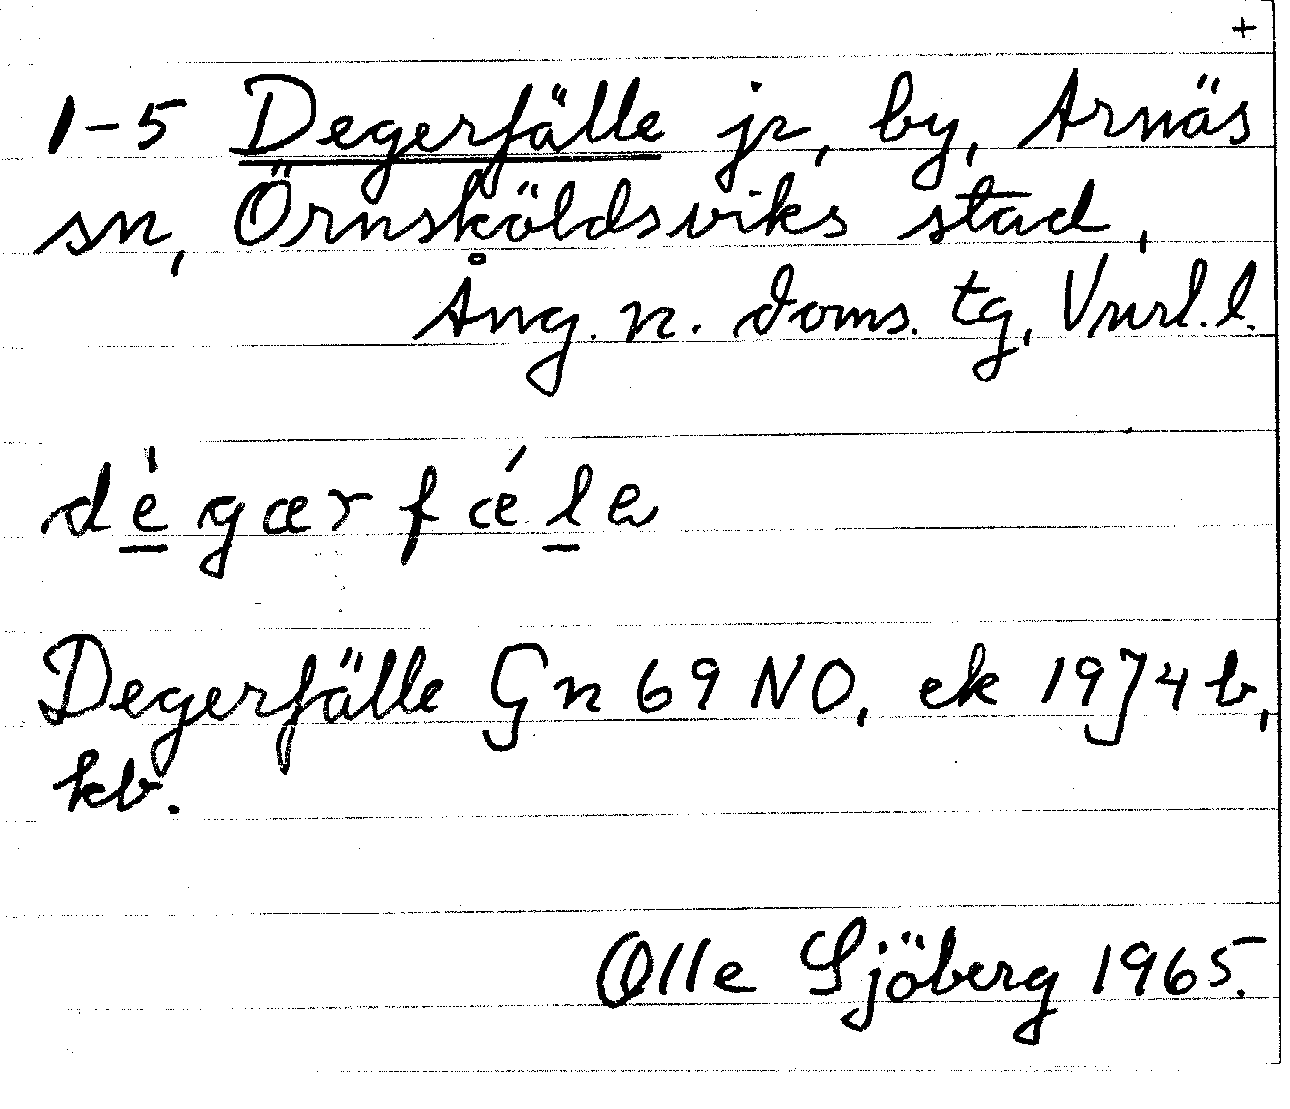 +
1-5 Degerfälle jr, by, Arnäs
sn, Örnsköldsviks stad,
Ång. n. doms. tg, Vnrl. l.
dė̱gærfǽl̲ə
Degerfälle Gn 69 NO, ek 1974 b,
kb.
Olle Sjöberg 1965.